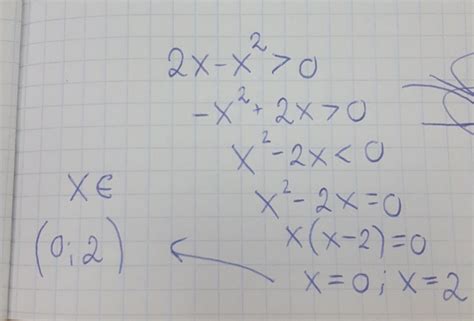 2x-x²>0
-x²+2x>0
x²-2x<0
x²-2x=0
x(x-2)=0
x=0; x=2
x∈
(0;2)